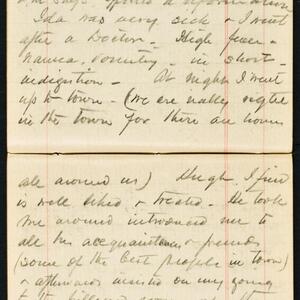 Ida was very sick & I went
after a Doctor - High fever -
Nausea, vomiting - in short -
indigestion - At night I went
up to town - (we are really right
in the town for there are houses
all around us) Hugh, I find
is well liked & treated. He took
me around introduced me to
all his acquaintances & friends
(some of the best people in town)
& afterwards insisted on my going
to the